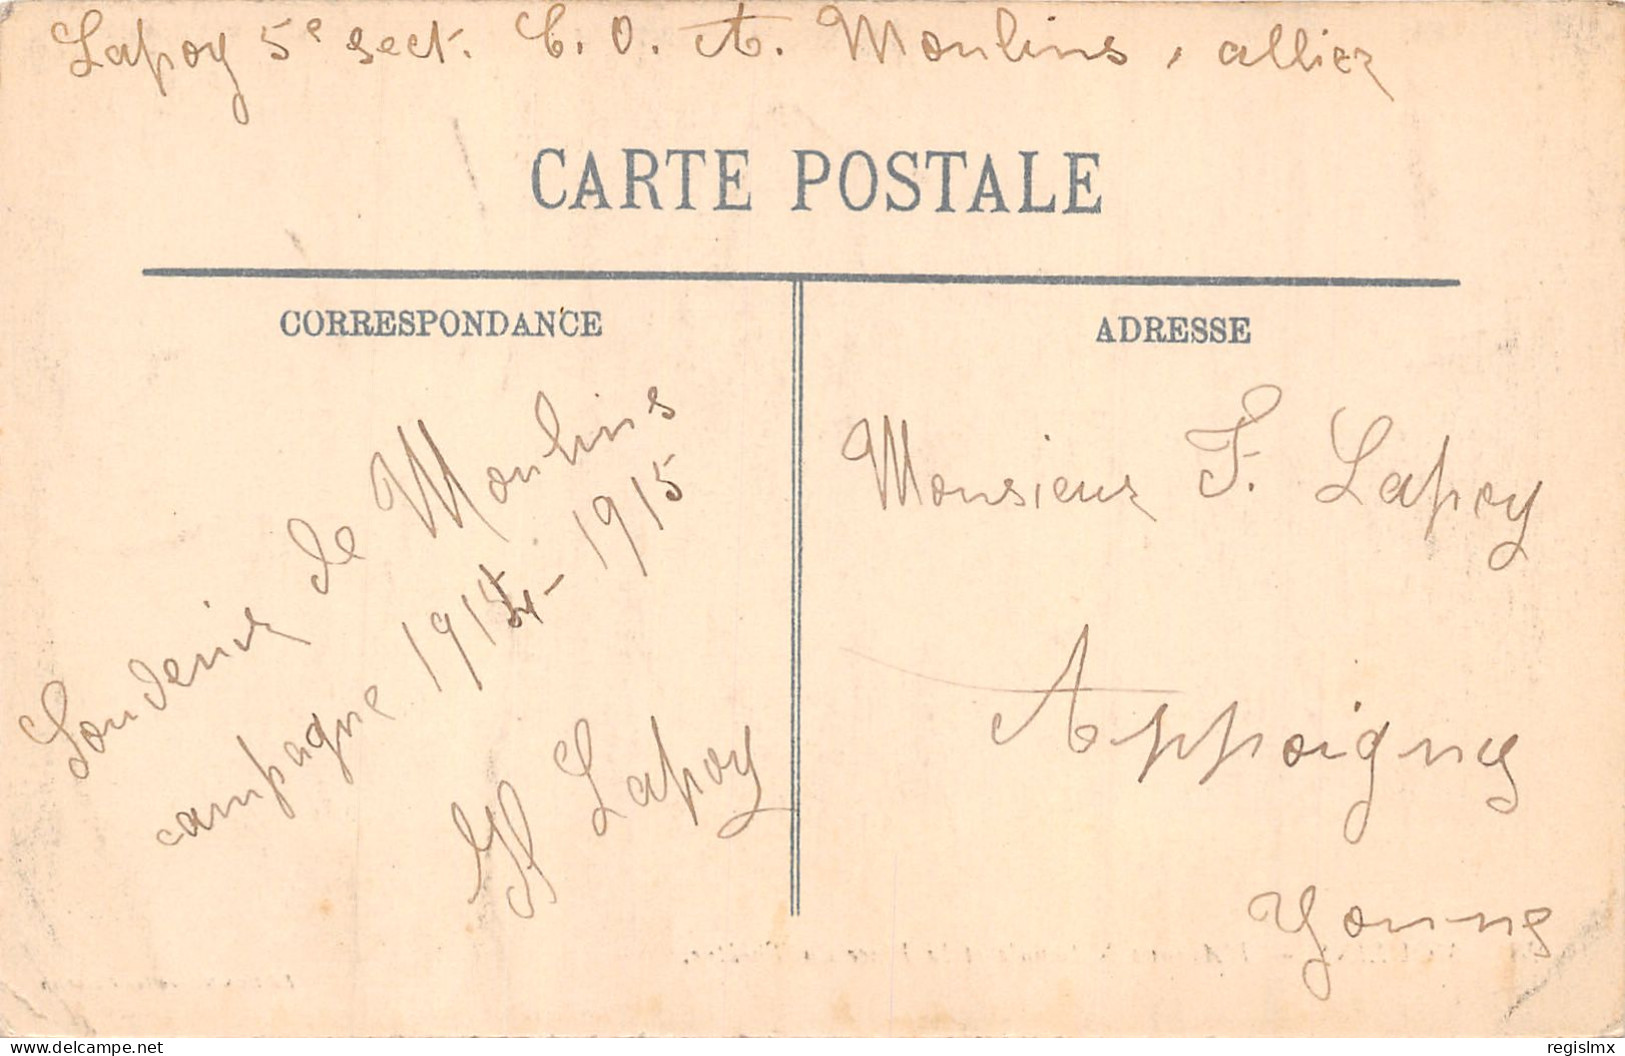 Lapoy 5e sect. C. O. A. Moulins, allier
CARTE POSTALE
CORRESPONDANCE
Souvenir de Moulins
campagne 1914-1915
H Lapoy
ADRESSE
Monsieur F. Lapoy
Appoigny
Yonne
www.delcampe.net
regislmx